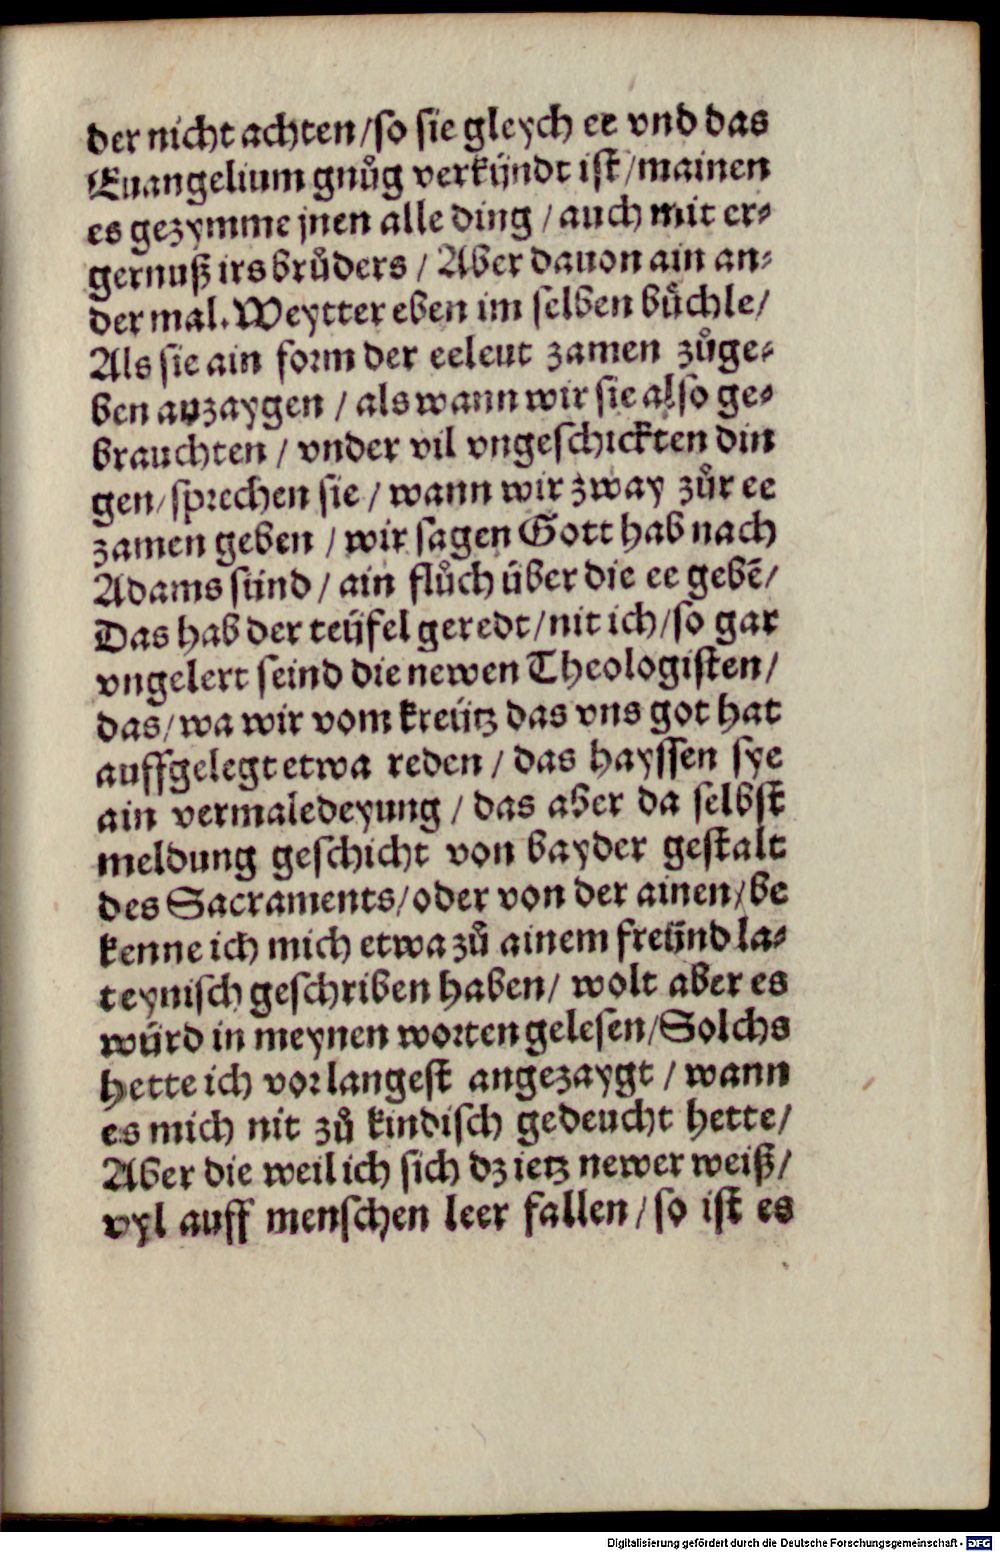 der nicht achten/so sie gleych ee vnd das
Euangelium gnůg verkündt ist/mainen
es gezymme jnen alle ding/auch mit er⸗
gernuß irs brůders/Aber dauon ain an⸗
der mal. Weytter eben im selben büchle/
Als sie ain form der eeleut zamen zůge⸗
ben anzaygen/als wann wir sie also ge⸗
brauchten/vnder vil vngeschickten din
gen/sprechen sie/wann wir zway zůr ee
zamen geben/wir sagen Gott hab nach
Adams sünd/ain flůch über die ee gebē/
Das hab der teüfel geredt/nit ich/so gar
vngelert seind die newen Theologisten/
das/wa wir vom kreütz das vns got hat
auffgelegt etwa reden/das hayssen sye
ain vermaledeyung/das aber da selbst
meldung geschicht von bayder gestalt
des Sacraments/oder von der ainen/be
kenne ich mich etwa zů ainem freünd la⸗
teynisch geschriben haben/wolt aber es
würd in meynen worten gelesen/Solchs
hette ich vorlangest angezaygt/wann
es mich nit zů kindisch gedeucht hette/
Aber die weil ich sich dz ietz newer weiß/
vyl auff menschen leer fallen/so ist es
Digitalisierung gefördert durch die Deutsche Forschungsgemeinschaft - DFG